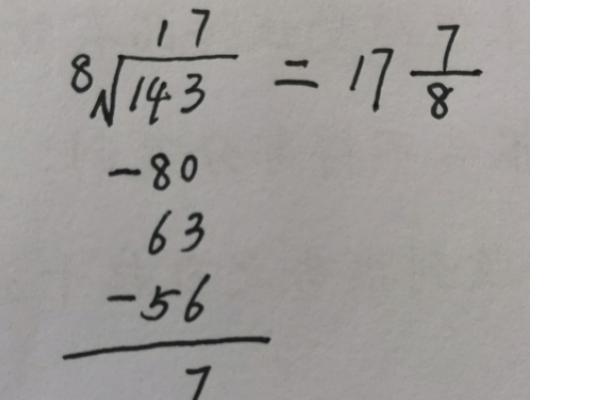 17
8√143 = 17 7/8
-80
63
-56
7